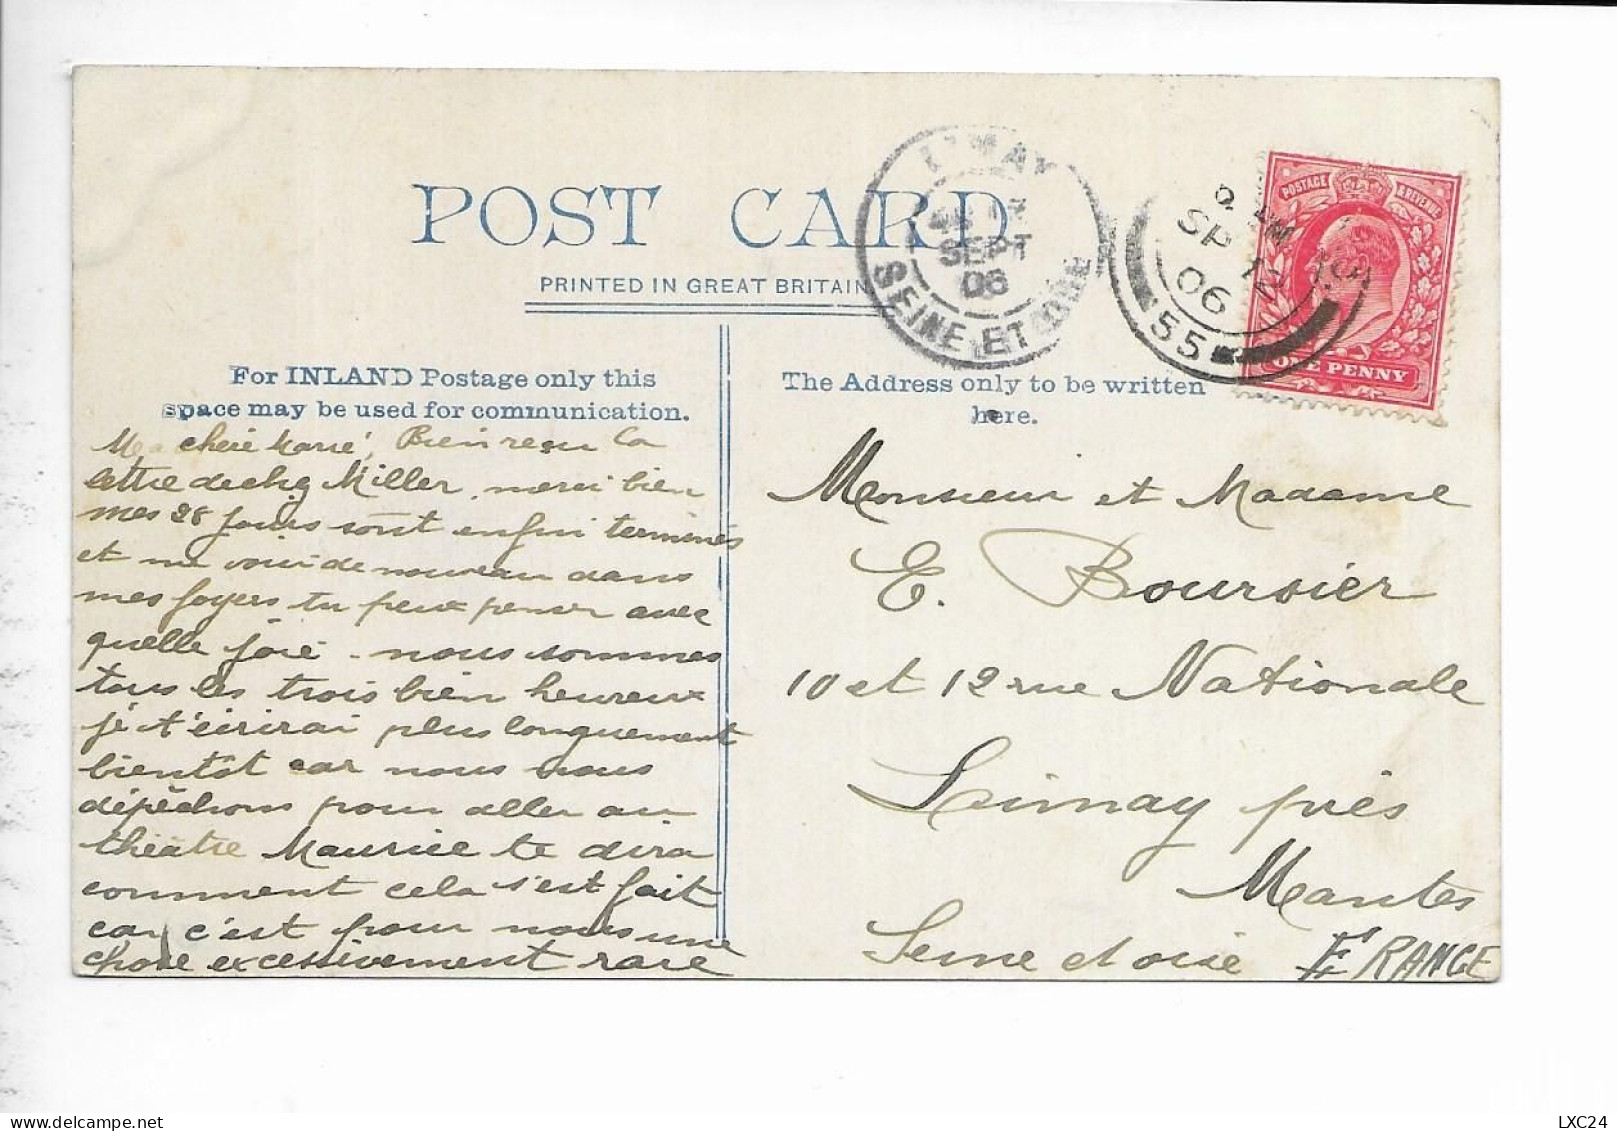 POST CARD
PRINTED IN GREAT BRITAIN
For INLAND Postage only this
space may be used for communication.
The Address only to be written
here.
LIMAY
SEPT
06
SEINE ET OISE
SP 12
06
55
POSTAGE & REVENUE
ONE PENNY
Ma chère Marie, Bien reçu la
lettre de chez Miller, merci bien
mes 28 jours sont enfin terminés
et me voici de nouveau dans
mes foyers tu peux penser avec
quelle joie. nous sommes
tous les trois bien heureux
je t'écrirai plus longuement
bientôt car nous nous
dépêchons pour aller au
théâtre Maurice te dira
comment cela s'est fait
car c'est pour nous une
chose excessivement rare
Monsieur et Madame
E. Boursier
10 et 12 rue Nationale
Limay près
Mantes
Seine et oise FRANCE
LXC24